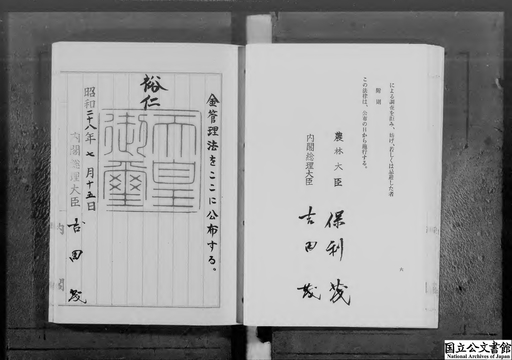 による調査を拒み、妨げ、若しくは忌避した者
附則
この法律は、公布の日から施行する。
農林大臣 保利茂
内閣総理大臣 吉田茂
六
金管理法をここに公布する。
裕仁
天皇御璽
昭和二十八年七月十五日
内閣総理大臣 吉田茂
内閣
国立公文書館
National Archives of Japan